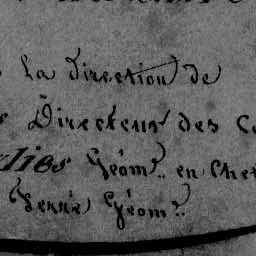 La Direction de
Directeur des
lies Géom. en Chef
Géom.